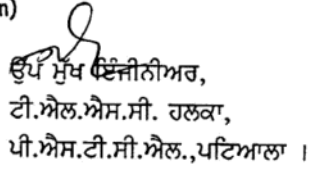 n)
ਉਪ ਮੁੱਖ ਇੰਜੀਨੀਅਰ,
ਟੀ.ਐਲ.ਐਸ.ਸੀ. ਹਲਕਾ,
ਪੀ.ਐਸ.ਟੀ.ਸੀ.ਐਲ.,ਪਟਿਆਲਾ ।